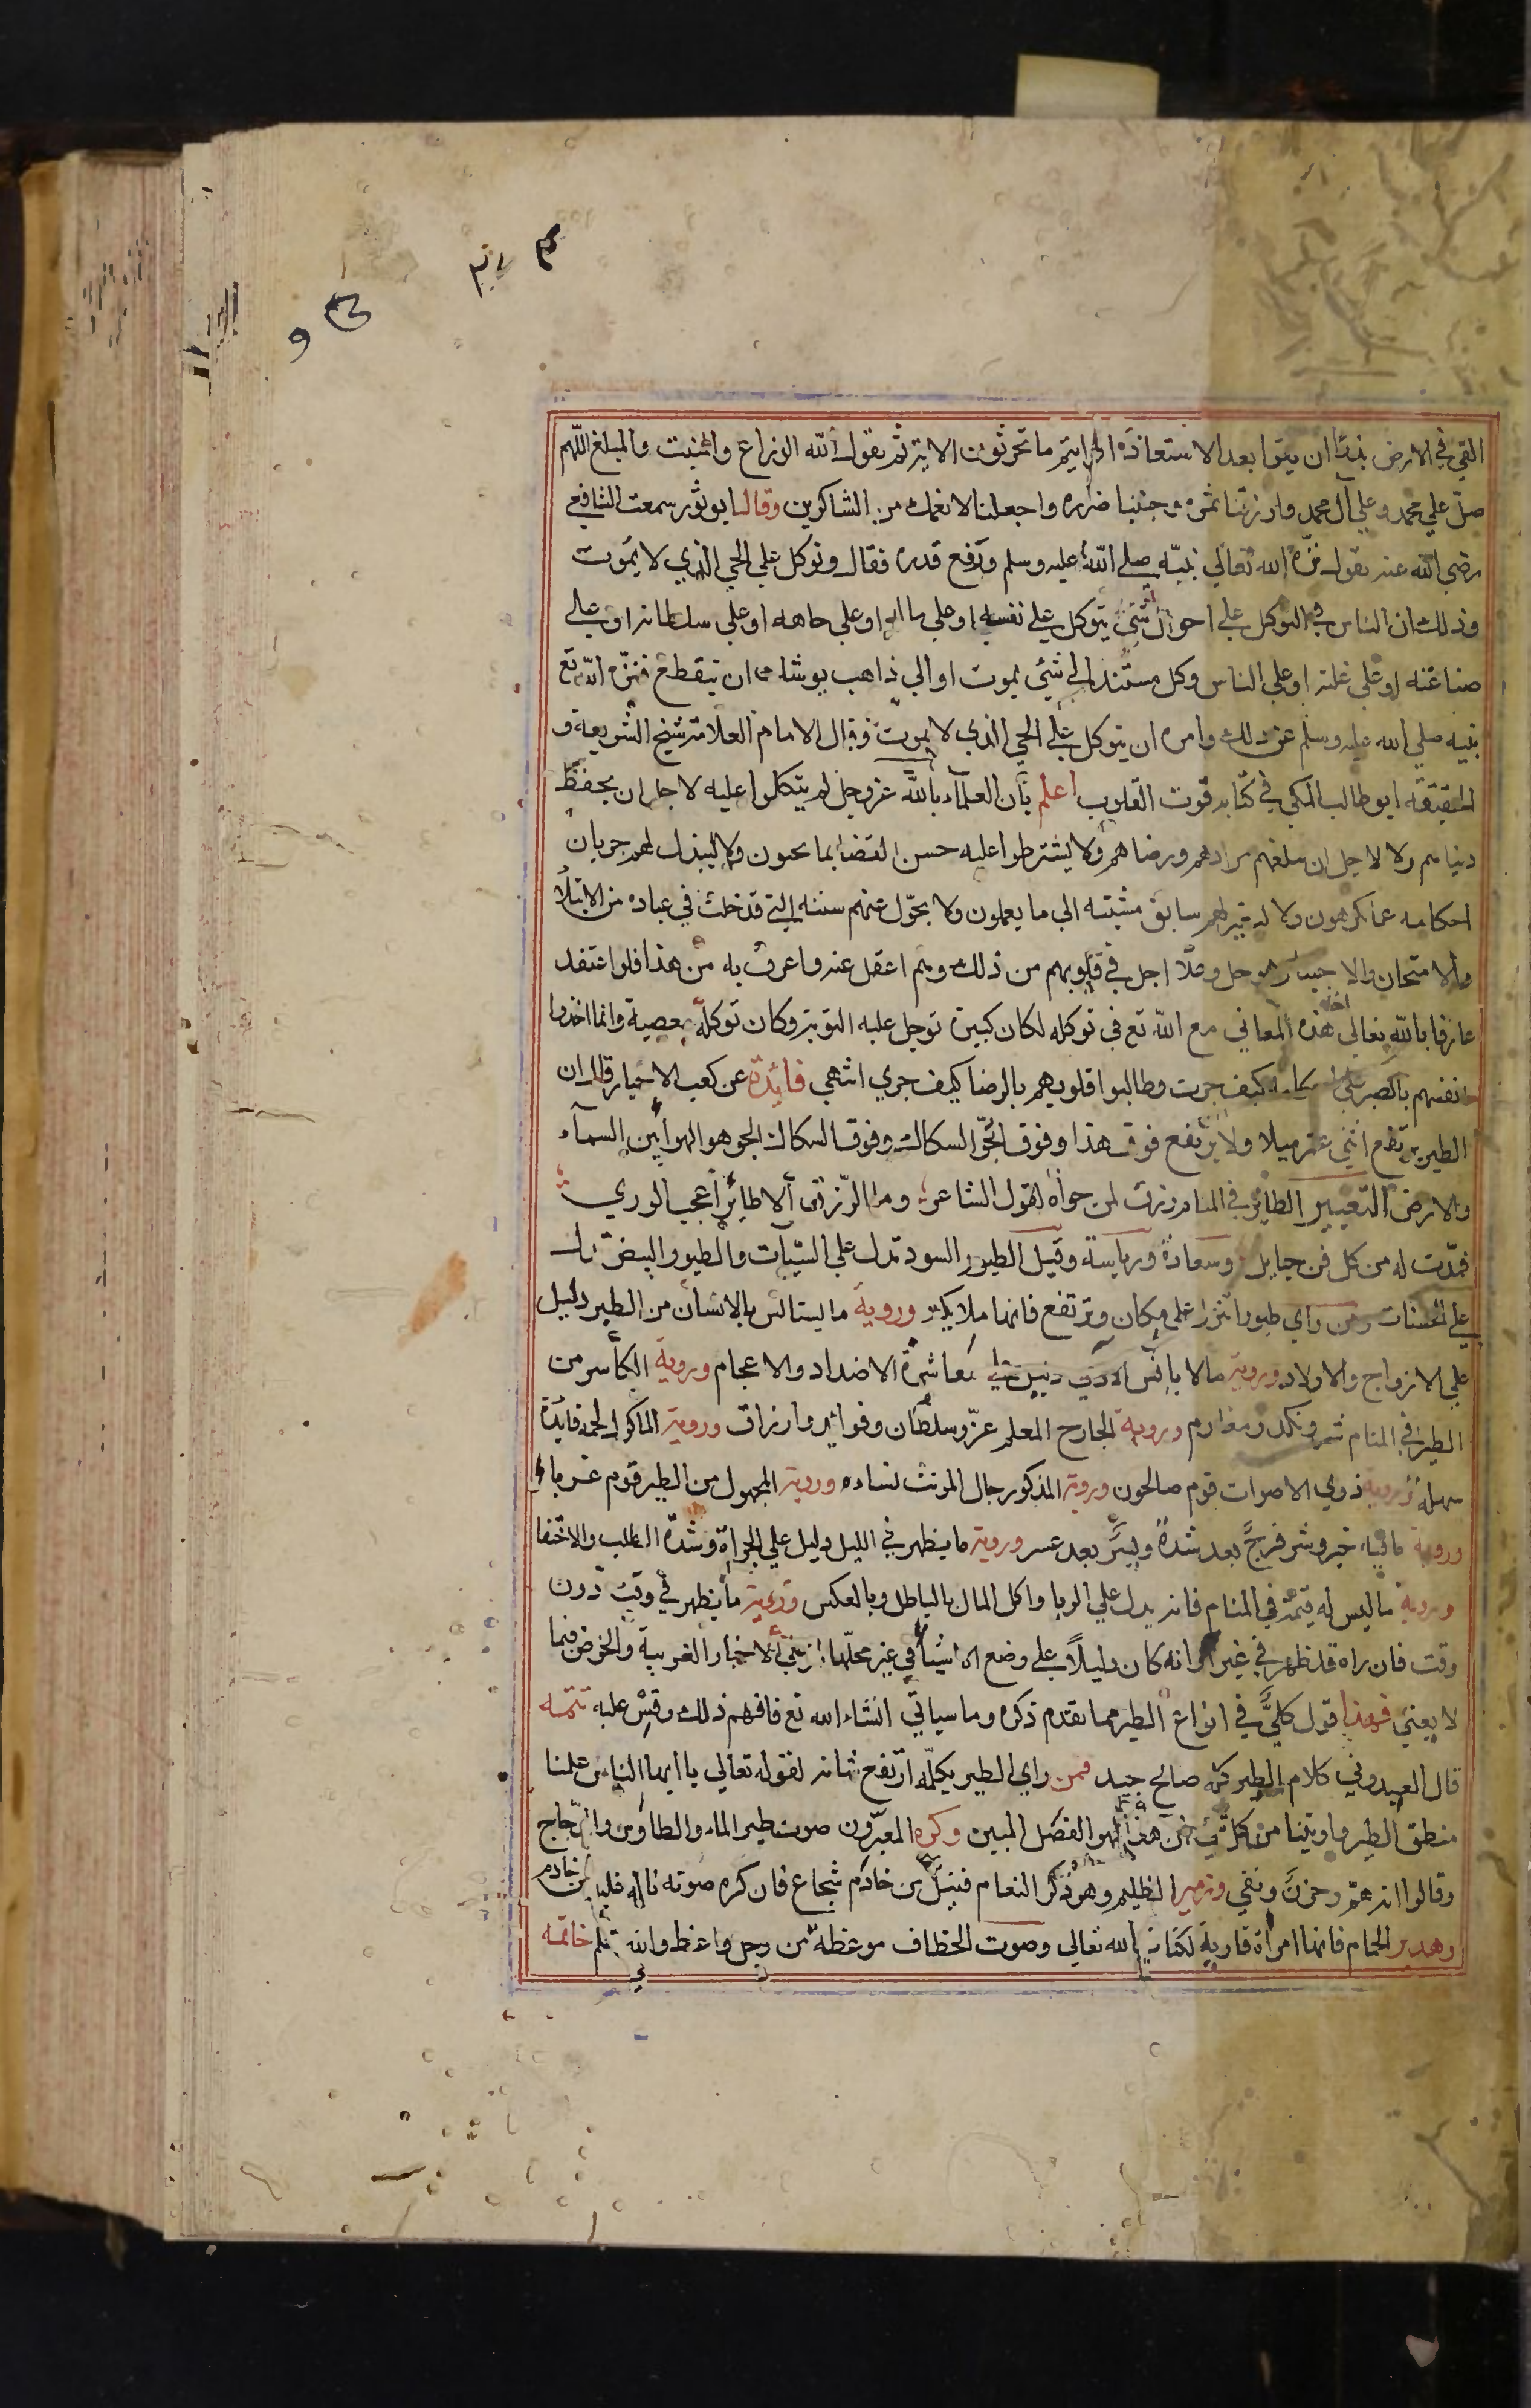 القي في الارض بذرًا ان يقرا بعد الاستعاذة افرايتم ما تحرثون الاية ثم يقول الله الزراع والمنبت والمبلغ اللّهم
صلّ علي محمد وعلي آل محمد وارزقنا ثمره وجنبنا ضرره واجعلنا لانعمك من الشاكرين وقال ابو ثور سمعت الشافعي
رضي الله عنه يقول نزّه الله تعالي نبيّه صلي الله عليه وسلم ورفع قدره فقال وتوكل علي الحي الذي لا يموت
وذلك ان الناس في التوكل علي احوال شتي يتوكل علي نفسه او علي ماله او علي جاهه او علي سلطانه او علي
صناعته او علي غلته او علي الناس وكل مستند الي شئ يموت او الي ذاهب يوشك ان ينقطع فنزّه الله تع
نبيه صلي الله عليه وسلم عن ذلك وامره ان يتوكل علي الحي الذي لا يموت وقال الامام العلامة شيخ الشريعة و
الحقيقة ابو طالب المكي في كتابه قوت القلوب اعلم بان العلمآء بالله عز وجل لم يتكلوا عليه لاجل ان يحفظ
دنياهم ولا لاجل ان يبلغهم مرادهم ورضاهم ولا يشترطوا عليه حسن القضا بما يحبون ولا ليبذل لهم جريان
احكامه عما يكرهون ولا ليغير لهم سابق مشيته الي ما يعملون ولا يحوّل عنهم سنته التي قد خلت في عباده من الابتلأ
والامتحان والاختبار هو جل وعلا اجل في قلوبهم من ذلك وهم اعقل عنه واعرف به من هذا فلو اعتقد
عارفا بالله تعالي احد هذه المعاني مع الله تع في توكله لكان كبيرة توجل عليه التوبة وكان توكله معصية وانما اخذوا
انفسهم بالصبر علي احكامه كيف جرت وطالبوا قلوبهم بالرضا كيف جري انتهي فائدة عن كعب الاحبار قال ان
الطير يرتفع اثني عشر ميلا ولا يرتفع فوق هذا وفوق الجوّ السكاك وفوق السكاك الجو هو الهوا بين السمآء
والارض التعبير الطاير في المنام رزق لمن حواه لقول الشاعر وما الرّزق الا طائرٌ اعجب الوري
فمدّت له من كل فن حبايل وسعادة ورياسة وقيل الطيور السود تدل علي السّيآت والطيور البيض تدل
علي الحسنات ومن راي طيورا تنزل علي مكان وترتفع فانها ملايكة وروية ما يستانس بالانسان من الطير دليل
علي الازواج والاولاد وروية ما لا يانس الادمي دليل علي معاشرة الاضداد والاعجام وروية الكاسر من
الطير في المنام شر ونكد ومغارم وروية الجارح المعلم عزّ وسلطان وفوائد وارزاق وروية الماكول لحمه فايدة
سهلة وروية ذوي الاصوات قوم صالحون وروية المذكور رجال المونث نساء وروية المجهول من الطير قوم غربا
وروية ما فيه خير وشر فرجٌ بعد شدة ويسرٌ بعد عسر وروية ما يظهر في الليل دليل علي الجراة وشدّة الطلب والاختفا
وروية ما ليس له قيمة في المنام فانه يدل علي الربا واكل المال بالباطل وبالعكس وروية ما يظهر في وقت دون
وقت فان راه قد ظهر في غير اوانه كان دليلاً علي وضع الاشيأ في غير محلّها او علي الاخبار الغريبة والخوض فيما
لا يعني فهذا قول كليٌّ في انواع الطير مما تقدم ذكره وما سياتي انشاء الله تع فافهم ذلك وقس عليه تتمه
قال العبدوني كلام الطير كله صالح جيد فمن راي الطير يكلّمه ارتفع شانه لقوله تعالي يا ايها الناس علمنا
منطق الطير واوتينا من كل شئ ان هذا لهو الفضل المبين وكره المعبّرون صوت طير الماء والطاوس والدّجاج
وقالوا انه همّ وحزنٌ ونعي وزمير الظليم وهو ذكر النعام فقتل من خادم شجاع فان كره صوته فانه غلبة من خادم
وهدير الحمام فانها امراة قارية لكتاب الله تعالي وصوت الخطاف موعظةٌ من رجل واعظ والله تعلم خاتمه